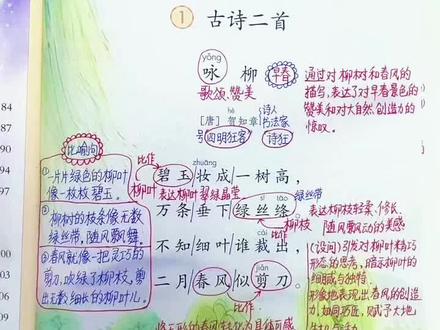 1 古诗二首
yǒng
咏柳
早春
歌颂、赞美
通过对柳树和春风的
描写,表达了对早春景色的
赞美和对大自然创造力的
惊叹。
[唐] 贺知章
诗人
书法家
号四明狂客
诗狂
84
90
比喻句
①一片片绿色的柳叶
像一枚枚碧玉。
②柳树的枝条像无数
绿丝带,随风飘舞。
③春风就像一把灵巧的
剪刀,吹绿了柳枝,剪
出无数细长的柳叶儿。
比作
zhuāng
碧玉妆成一树高,
柳叶
表达柳叶翠绿晶莹
sī tāo
绿丝带
万条垂下绿丝绦。
比作
柳枝
表达柳枝轻柔、修长、
随风飘动的美感
cái
不知细叶谁裁出,
(设问)引发对柳叶精巧
形态的思考,暗示柳叶的
细腻与独特。
比作
jiǎn
二月春风似剪刀。
形象地表现出春风的创造
力,如同巧匠,赋予大地